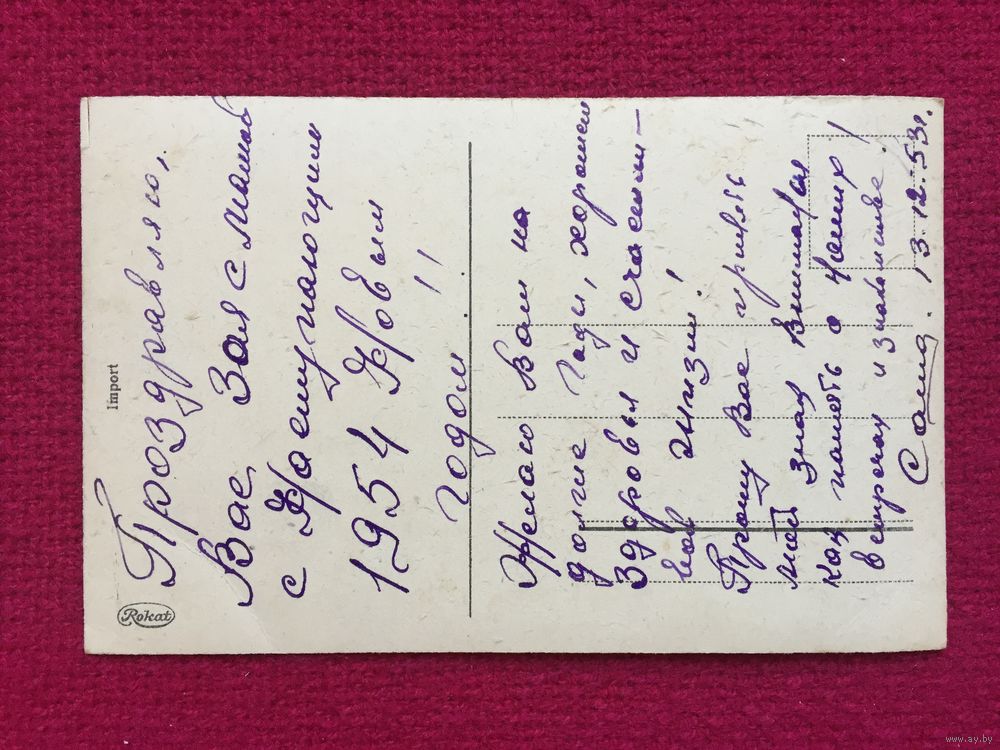 Rokat
Import
Проздравляю,
Вас Зоя с мамой
с Наступающим
1954 Новым
годом!!
Желаю Вам на
долгие годы, хорошем
Здоровья и счастли-
вой жизни!
Прошу Вас принять
мой знак внимания
как память о наших
встречах и знакомстве!
Саша. 13.12.53г.
www.ay.by